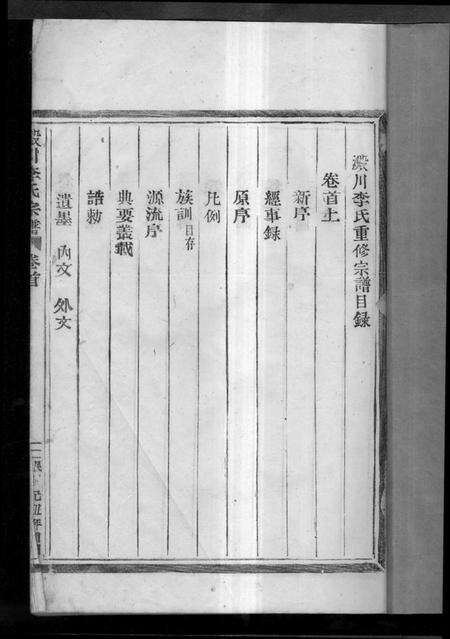 瀫川李氏重修宗譜目錄
卷首上
新序
經事錄
原序
凡例
族訓目存
源流序
典要叢載
誥勅
遺墨 內文 外文
瀫川李氏宗譜 卷首